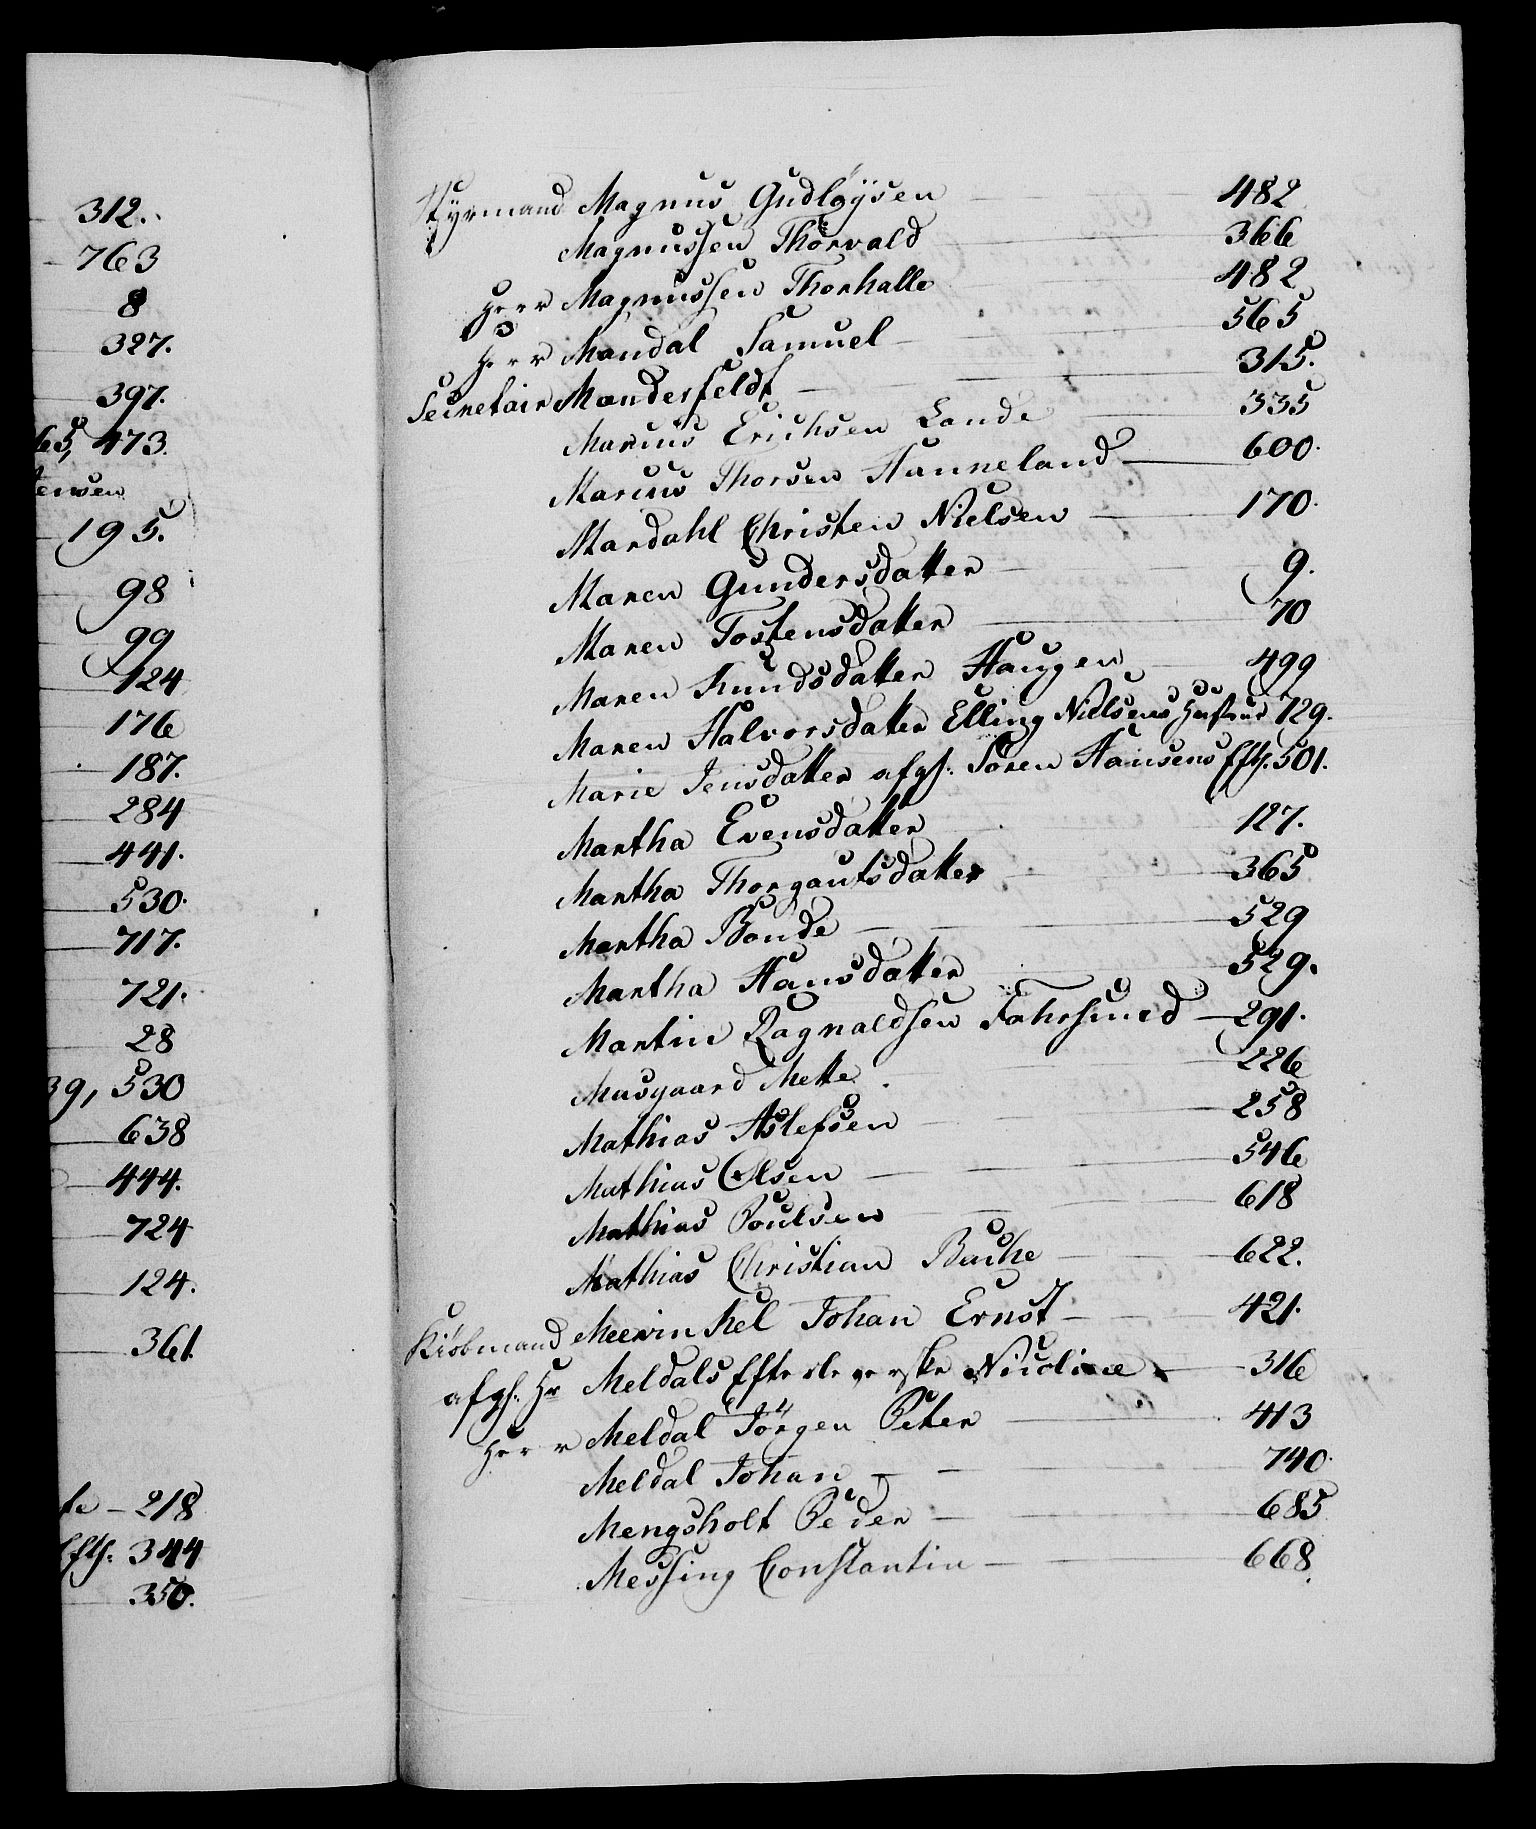 312.
763
8
327.
397.
65, 473.
tensen
195.
98
99
124
176
187.
284
441.
530.
717.
721.
28
39, 530
638
444.
724
124.
361.
te - 218
Efth. 344
350.
Styrmand Magnus Gudløysen 482
Magnussen Thorvald 366
Herr Magnussen Thorhalle 482
Herr Mandal Samuel 565
Secretair Manderfeldt 315.
Marcus Erichsen Lande 335
Marcus Thorsen Hanneland 600.
Mardahl Christen Nielsen 170.
Maren Gundersdatter 9.
Maren Tostensdatter 70
Maren Knudsdatter Haugen 499
Maren Halvorsdatter Elling Nielsens Hustrue 729.
Marie Jensdatter afgh. Søren Hansens Efth. 501.
Martha Evensdatter 127.
Martha Thorgautsdatter 365
Martha Bonde 529
Martha Hansdatter 529.
Martin Ragnaldsen Fahrsund 291.
Masgaard Mette 226
Mathias Aslefsen 258
Mathias Olsen 546
Mathias Poulsen 618
Mathias Christian Bache 622.
Kiøbmand Meevinkel Johan Ernst 421.
afgh. Hr Meldals Efterleverske Nicoline 316
Herr Meldal Jörgen Peter 413
Meldal Johan 740.
Mengsholt Peder 685
Messing Constantin 668.